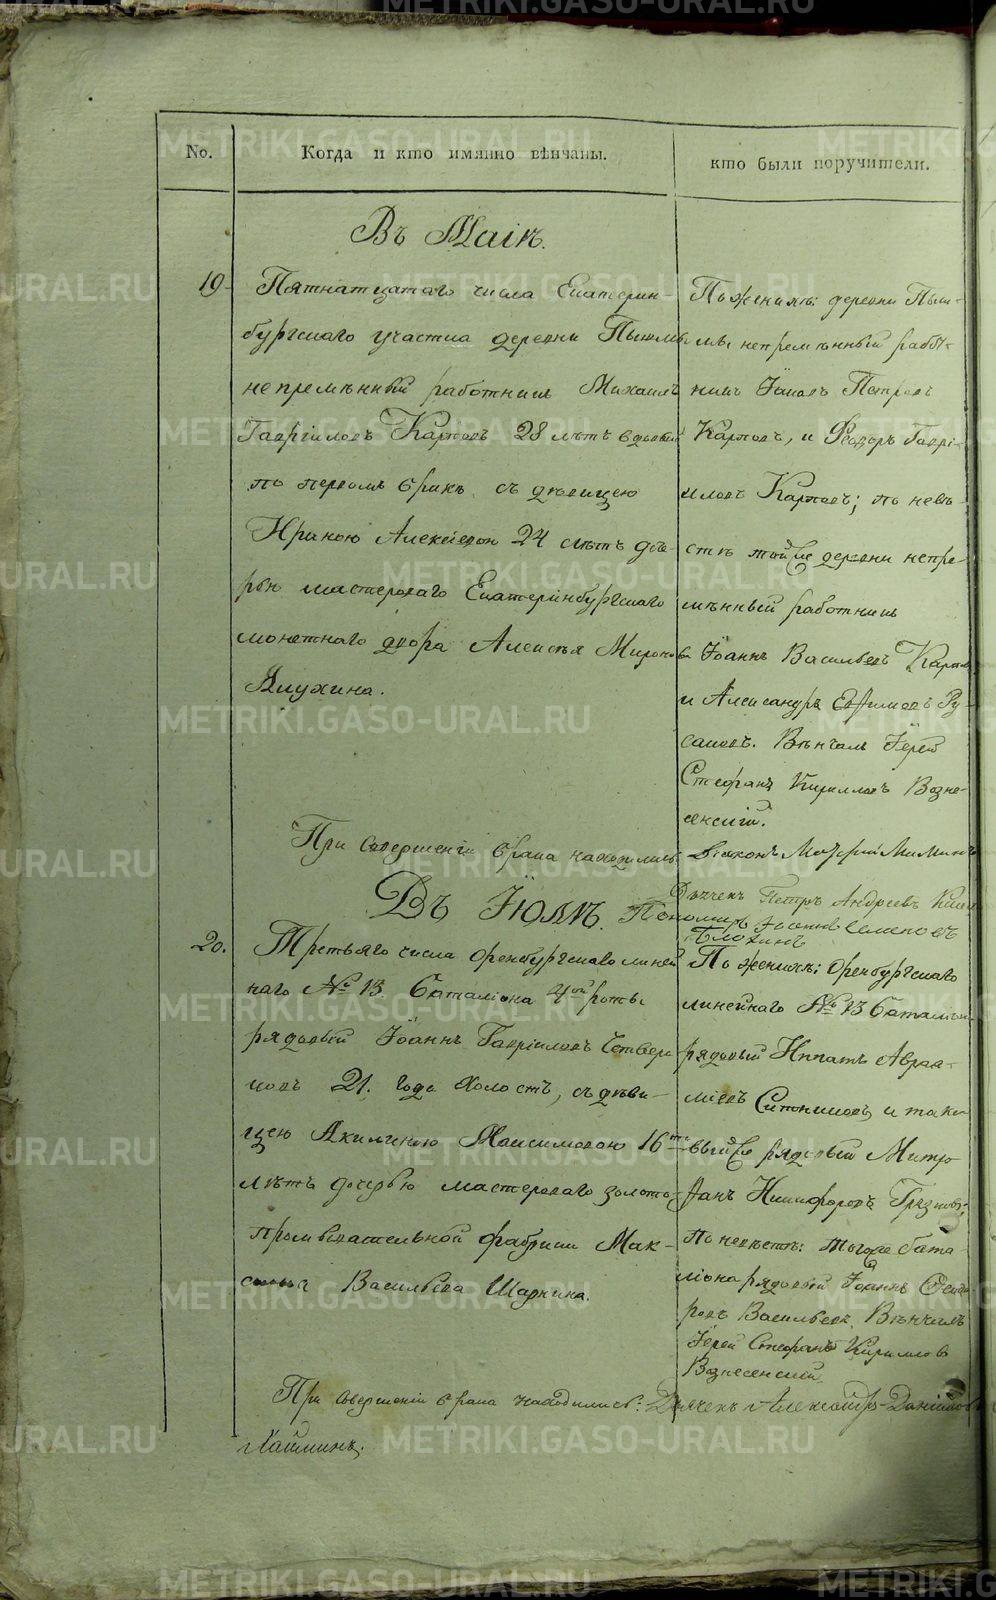 No.
Когда и кто имянно вѣнчаны.
кто были поручители.
Въ Маіѣ.
19
Пятнатцатаго числа Екатерин-
бургскаго участка деревни Пышмы
непремѣнный работникъ Михаилъ
Гавріиловъ Карповъ 28 лѣтъ вдовый
по первомъ бракѣ съ дѣвицею
Ириною Алексеевой 24 лѣтъ доч-
рью мастероваго Екатеринбургскаго
монетнаго двора Алексѣя Миронова
Плужина.
По женихѣ: деревни Пыш-
мы непремѣнный работ-
никъ Іаковъ Петровъ
Карповъ, и Феодоръ Гаврі-
иловъ Карповъ; по невѣ-
стѣ тойже деревни непре-
мѣнный работникъ
Іоаннъ Васильевъ Карповъ
и Александръ Евфимовъ Ру-
саковъ. Вѣнчалъ Іерей
Стефанъ Кирилловъ Возне-
сенскій.
При совершеніи брака находились:
Діаконъ
Дьячекъ Петръ Андреевъ
Пономарь Іоаннъ Семеновъ
Плохинъ
Въ Іюлѣ.
20.
Третьяго числа Оренбургскаго линей
наго № 13 баталіона 4ой роты
рядовый Іоаннъ Гавріиловъ Четвери
ковъ 21. года холостъ, съ дѣви-
цею Акилиною Максимовою 16ти
лѣтъ дочерью мастероваго золото-
промывательной фабрики Мак-
сима Васильева Шаркина.
По женихѣ: Оренбургскаго
линейнаго № 13 баталіона
рядовый Ипатъ Аврам-
міевъ Ситниковъ, и тако
выйже рядовый Митро
фанъ Никифоровъ Грязновъ;
По невѣстѣ: тогоже бата-
ліона рядовый Іоаннъ Феодо
ровъ Васильевъ. Вѣнчалъ
Іерей Стефанъ Кирилловъ
Вознесенскій.
При совершеніи брака находились: Дьячекъ Александръ Даниловъ
Лаклинъ.
METRIKI.GASO-URAL.RU